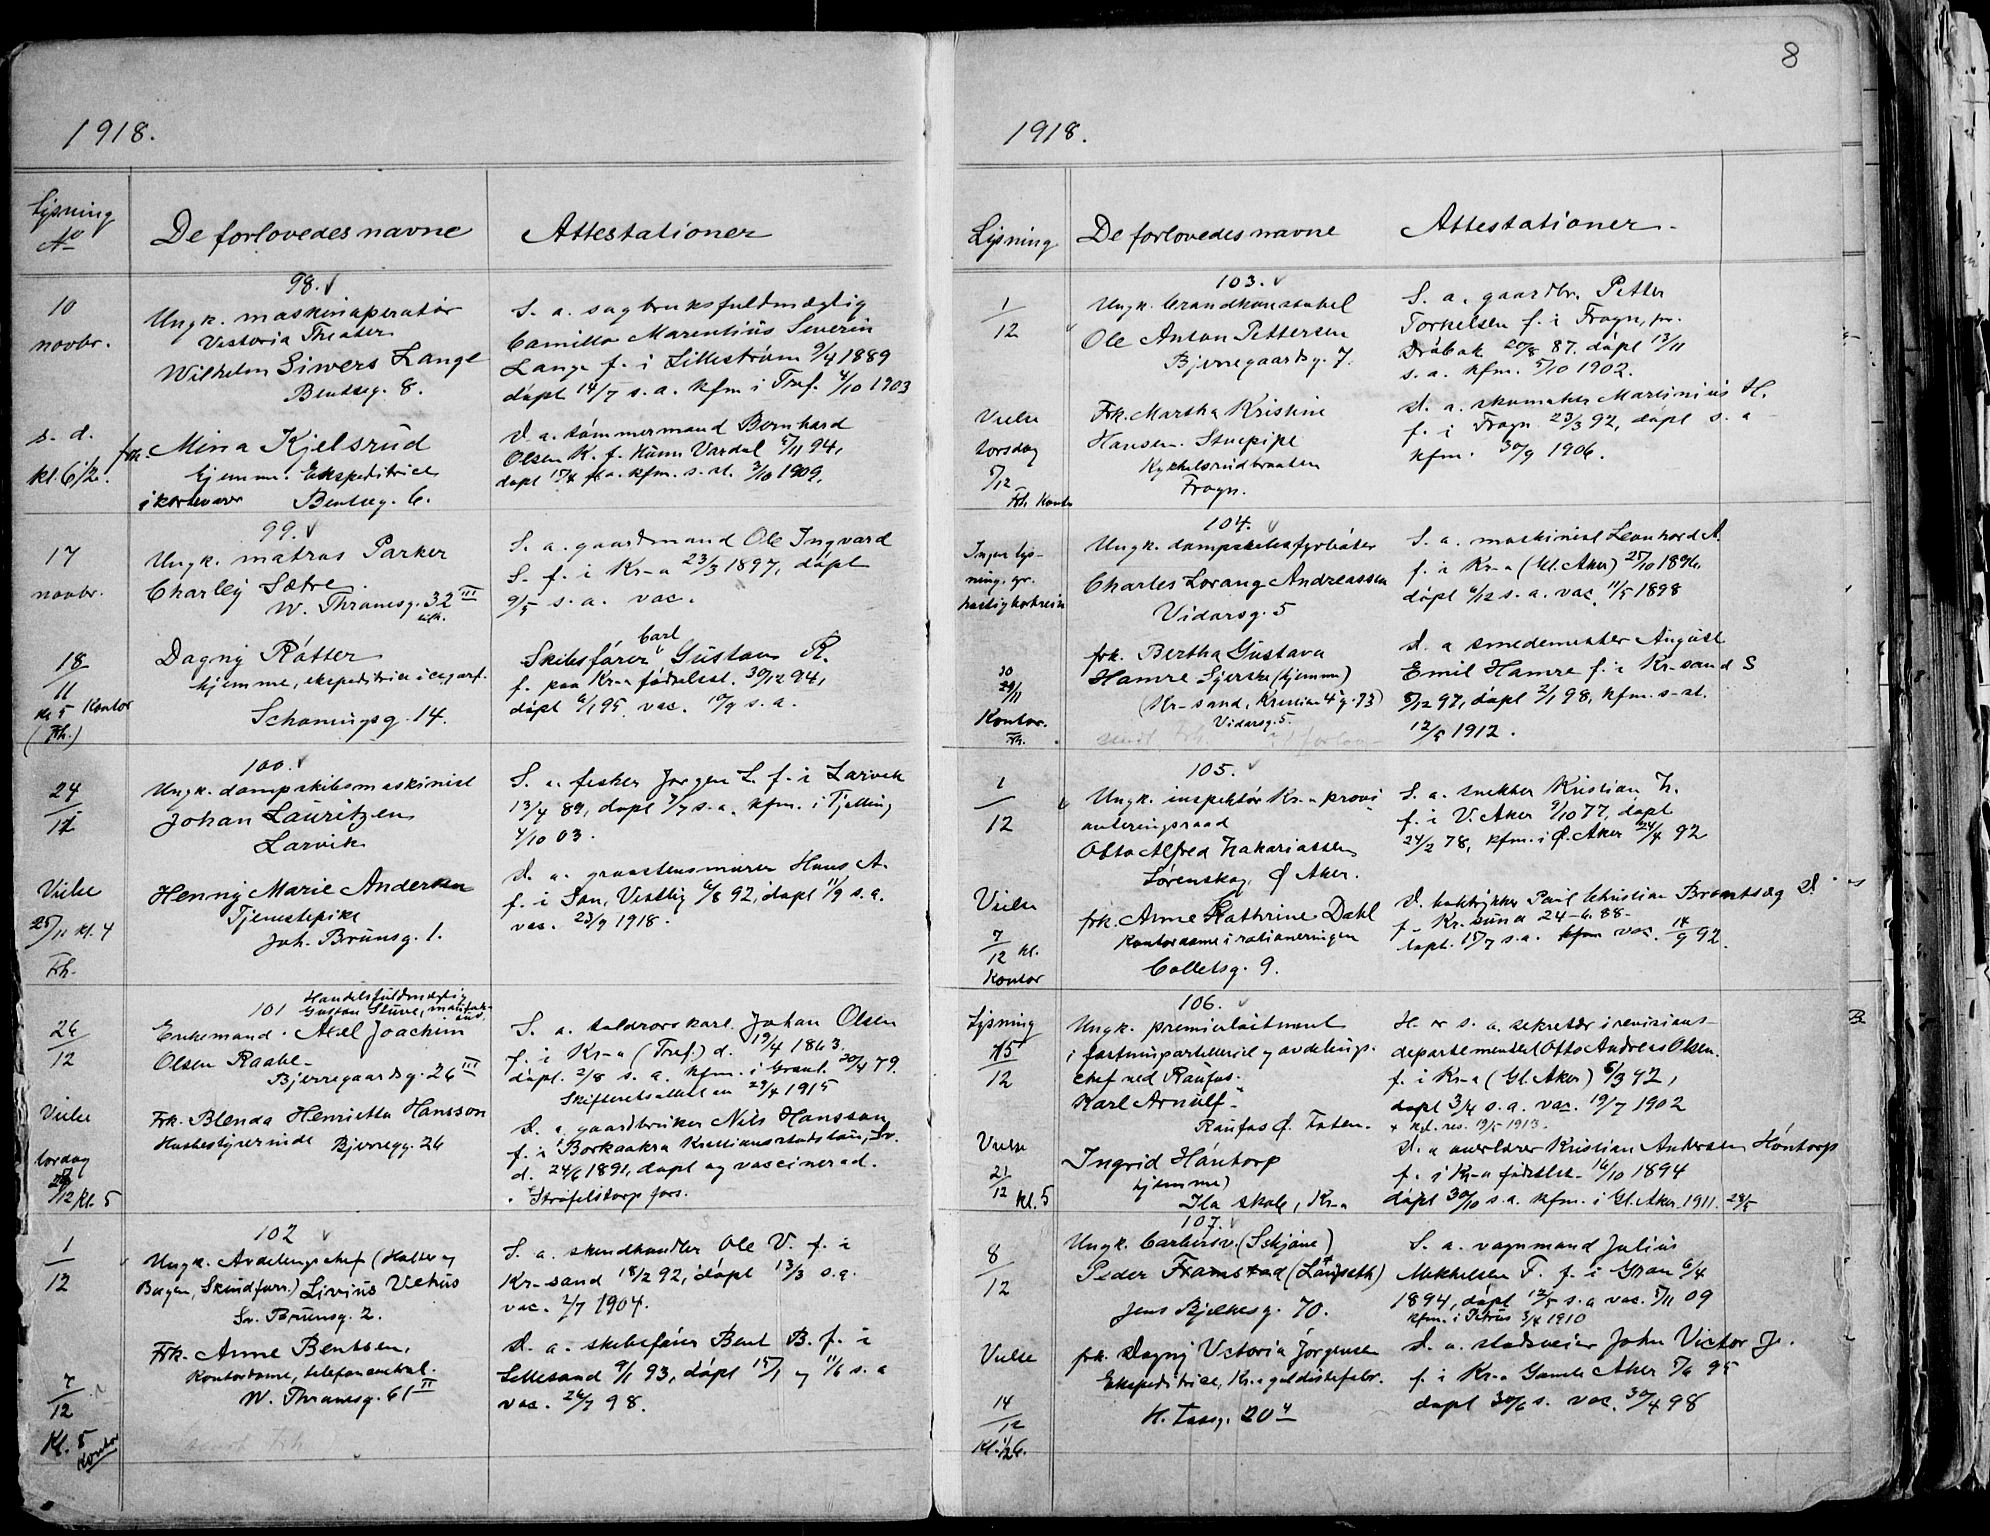 8
1918.
Lysning
No
De forlovedes navne
Attestationer
10
novbr.
s. d.
kl. 6 1/2.
98.
Ungk. maskinoperatør
Victoria Theater
Wilhelm Siwers Lange
Bentseg. 8.
frk. Mina Kjelsrud
Hjemme. Ekspeditrice
Bentseg. 6.
S. a. sagbruksfuldmægtig
Camillo Marentius Severin
Lange f. i Lillestrøm 9/4 1889
døpt 14/7 s. a. kfm i Tref. 4/10 1903
D. a. tømmermand Bernhard
Olsen K. f. Hunn Vardal 5/11 94,
døpt 15/4 s. a. kfm. s. st. 3/10 1909.
17
novbr.
18/11
kl 5 Kontor
(Frh.)
99.
Ungk. matros Parker
Charley Sætre.
W. Thranesg. 32 III
Dagny Røtter
hjemme, ekspeditrice i cigarf.
Schøningsg. 14.
S. a. gaardmand Ole Ingvard
S. f. i Kr-a 23/3 1897, døpt
9/5 s. a. vac.
Carl
Skibsfører Gustav R.
f. paa Kr-a fødselsst. 30/12 94,
døpt 6/1 95, vac. 10/9 s. a.
24/11
Vielse
25/11 kl. 4
Frh.
100.
Ungk. dampskibsmaskinist
Johan Lauritzen
Larvik
Henny Marie Andersen
Tjenestepike
Joh. Brunsg. 1.
S. a. fisker Jørgen L. f. i Larvik
13/4 89, døpt 7/7 s. a. kfm. i Tjølling
4/10 03.
D. a. graastensmurer Hans A.
f. i Son, Vestby 6/8 92, døpt 11/9 s. a.
vac. 23/9 1918.
26/12
Vielse
lørdag
/12 kl. 5
101
Handelsfuldmægtig
Enkemand. Axel Joachim
Olsen Raabe
Bjerregaardsg. 26 III
Frk. Blenda Henrietta Hansson
Husbestyrerinde Bjerregg. 26
S. a. toldrorskarl Johan Olsen
f. i Kr-a (Tref.) d. 19/4 1863.
døpt. 2/8 s. a. kfm. i Grønl. 20/4 79.
Skifteretsattest en 29/4 1915
D. a. gaardbruker Nils Hansson
f. i Borkaakra Kristiansstadslän, Sv.
d. 24/6 1891, døpt og vaccinerad.
Strøfelstorp fors.
1/12
7/12
Kl. 5
Kontor
102
Ungk. Avdelingschef (Hatter og
Bugen, Skindforr.) Livius Vethus
Sv. Brunsg. 2.
Frk. Anne Bentsen,
Kontordame, telefoncentral.
W. Thranesg. 61 II
S. a. skindhandler Ole V. f. i
Kr-sand 18/2 92, døpt 13/3 s. a.
vac. 2/7 1904.
D. a. skibsfører Bent B. f. i
Lillesand 9/1 93, døpt 15/1 og 11/6 s. a
vac. 26/7 98.
1918.
Lysning
De forlovedes navne
Attestationer
1/12
Vielse
torsdag
5/12
Frh. Kontor
103.
Ungk. brandkonstabel
Ole Anton Pettersen
Bjerregaardsg. 7.
Frk. Martha Kristine
Hansen. Stuepike
Kykkelsrudbraaten
Frogn.
S. a. gaardbr. Petter
Torkelsen f. i Frogn, pr.
Drøbak 20/8 87. døpt 13/11
s. a. kfm. 5/10 1902.
D. a. skomaker Martinius H.
f. i Frogn 23/3 92, døpt s. a
kfm. 30/9 1906.
Ingen lys-
ning. gr.
30/11
Kontor.
Frh.
104.
Ungk. dampskibsfyrbøter
Charles Lorang Andreassen
Vidarsg. 5
frk. Bertha Gustava
Hamre Gjerske (hjemme)
(Kr-sand, Kristian 4 g. 73)
Vidarsg. 5.
S. a. maskinist Leonhard A.
f. i Kr-a (Gl. Aker) 25/10 1896.
døpt 6/12 s. a. vac. 11/5 1898
D. a smedemester August
Emil Hamre f. i Kr-sand S
5/12 97, døpt 2/1 98, kfm. s. st.
12/5 1912.
1/12
Vielse
7/12 kl.
Kontor
105.
Ungk. inspektør Kr-a provi
anteringsraad
Otto Alfred Zakariassen
Lørenskog, Ø Aker.
frk. Anne Kathrine Dahl
Kontordame i rationeringen
Colletsg. 9.
S. a. snekker Kristian Z.
f. i V. Aker 9/10 77, døpt
24/2 78, kfm. i Ø. Aker 24/4 92
D. boktrykker Paul Christian Brontsæg D.
f. Kr.sund 24-6. 88-
døpt. 15/7 s. a. kfm vac. 14/9 92.
Lysning
15/12
Vielse
21/12 kl. 5
106.
Ungk. premierløitnant
i fæstningsartilleriet og avdelings.
chef ved Raufos.
Karl Arnulf
Raufos Ø. Toten.
Ingrid Høntorp
hjemme)
Ila skole, Kr-a
H. er s. a. sekretær i revisions-
departementet Otto Andreas Olsen.
f. i Kr-a (Gl. Aker) 5/3 92,
døpt 3/4 s. a. vac. 19/7 1902
+ kgl. res. 19/5 1913.
D. a overlærer Kristian Andersen Høntorp
f. i Kr-a fødselsst. 16/10 1894
døpt 30/10 s. a. kfm. i Gl. Aker 1911. 28/5
8/12
Vielse
14/12
Kl. 1/2 6.
107.
Ungk. Carbersv. (Sskjøne)
Peder Framstad (Langseth)
Jens Bjelkesg. 70.
frk. Dagny Victoria Jørgensen
Ekspeditrice, Kr-a guldlistefabr.
H. Tassg. 20 4
S. a. vognmand Julius
Mikkelsen F. f. i Gran 6/4
1894, døpt 12/5 s. a vac. 5/11 09
kfm. i Petrus 3/4 1910
D. a. stadsveier John Victor J.
f. i Kr-a Gamle Aker 5/6 95
døpt 30/6 s. vac. 30/4 98